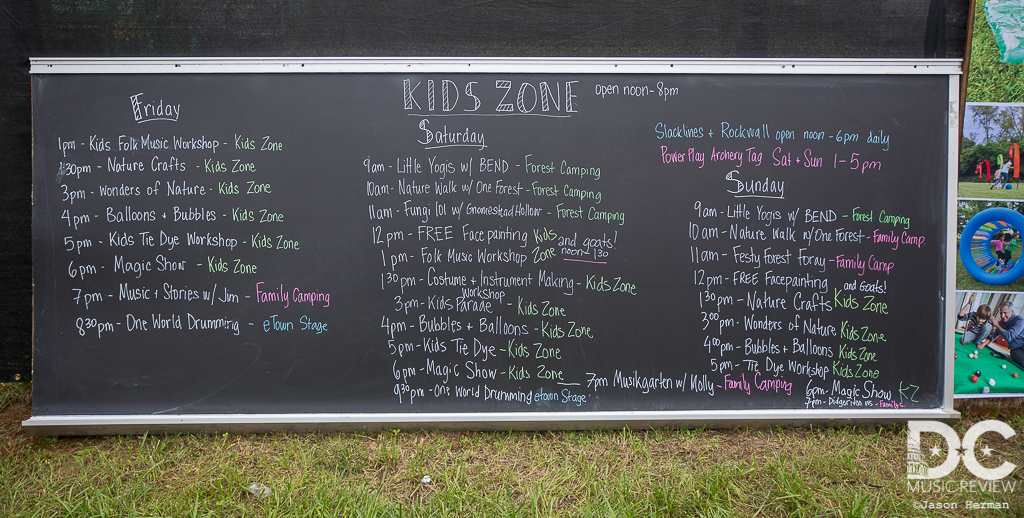 KIDS ZONE open noon-8pm
Friday
1pm - Kids Folk Music Workshop - Kids Zone
1:30pm - Nature Crafts - Kids Zone
3pm - Wonders of Nature - Kids Zone
4pm - Balloons + Bubbles - Kids Zone
5pm - Kids Tie Dye Workshop - Kids Zone
6pm - Magic Show - Kids Zone
7pm - Music + Stories w/ Jim - Family Camping
8:30pm - One World Drumming - eTown Stage
Saturday
9am - Little Yogis w/ BEND - Forest Camping
10am - Nature Walk w/ One Forest - Forest Camping
11am - Fungi 101 w/ Gnomestead Hollow - Forest Camping
12pm - FREE Face painting Kids Zone and goats! noon-1:30
1pm - Folk Music Workshop
1:30pm - Costume + Instrument Making - Kids Zone
workshop
3pm - Kids Parade - Kids Zone
4pm - Bubbles + Balloons - Kids Zone
5pm - Kids Tie Dye - Kids Zone
6pm - Magic Show - Kids Zone
7pm Musikgarten w/ Molly - Family Camping
9:30pm - One World Drumming etown Stage
Slacklines + Rockwall open noon-6pm daily
Power Play Archery Tag Sat + Sun 1-5pm
Sunday
9am - Little Yogis w/ BEND - Forest Camping
10am - Nature Walk w/ One Forest - Family Camp
11am - Festy forest foray - Family Camp
12pm - FREE Facepainting and Goats!
1:30pm - Nature Crafts Kids Zone
3:00pm - Wonders of Nature Kids Zone
4:00pm - Bubbles + Balloons Kids Zone
5pm - Tie Dye Workshop Kids Zone
6pm - Magic Show KZ
7pm - Didgeridoo ws - Family C.
DC
MUSIC REVIEW
©Jason Herman